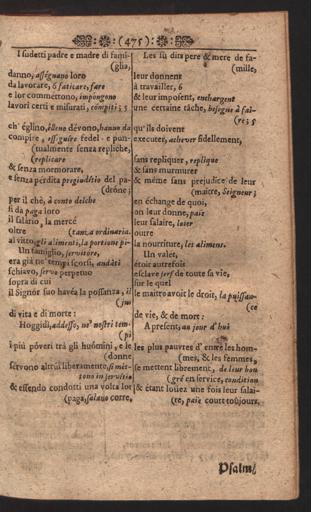 (475)
I sudetti padre e madre di fami-
(glia,
danno, assegnano loro
da lavorare, ó faticare, fare
e lor commettono, impóngono
lavori certi e misurati, cómpiti;
ch' églino, élleno dévono, hanno da
compire, esseguire fedel- e pun-
(tualmente senza repliche,
(replicare
& senza mormorare,
e senza pérdita pregiudítio del pa-
(dróne;
per il chè, à conto delche
si da paga loro
il salario, la mercé
oltre (tanza ordinaria.
al vitto, gli alimenti, la portione
Un famiglio, servitore,
era già ne' tempi scorsi, andàti
schiavo, servo perpetuo
sopra di cui
il Signór suo havéa la possanza, il
(jus
di vita e di morte:
Hoggidì, adesso, ne' nostri tem-
(pi
i più póveri trà gli huómini, e le
(donne
servono altrui liberamente, si met-
tono in servitio
& essendo condotti una volta lor
(paga, salario corre,
Les sù dits pere & mere de fa-
(mille,
leur donnent
à travailler,
& leur imposent, enchargent
une certaine tâche, besogne à fai-
(re;
qu'ils doivent
executer, achever fidellement,
sans repliquer, replique
& sans murmurer
& même sans prejudice de leur
(maitre, Seigneur;
en échange de quoi,
on leur donne, paie
leur salaire, loier
outre
la nourriture, les aliments.
Un valet,
étoit autrefois
esclave serf de toute sa vie,
sur le quel
le maitre avoit le droit, la puissan-
(ce
de vie, & de mort:
A present, au jour d'hui
les plus pauvres d' entre les hom-
(mes, & les femmes,
se mettent librement, de leur bon
(gré en service, condition
& étant louez une fois leur salai-
(re, paie court toûjours.
Psalm.